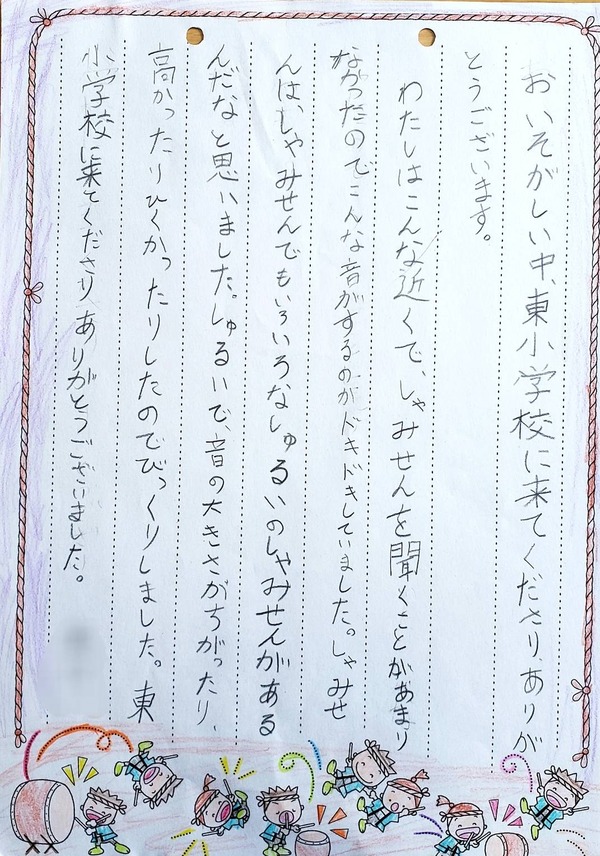 おいそがしい中、東小学校に来てくださり、ありが
とうございます。
わたしはこんな近くで、しゃみせんを聞くことがあまり
なかったのでこんな音がするのがドキドキしていました。しゃみせ
んは、しゃみせんでもいろいろなしゅるいのしゃみせんがある
んだなと思いました。しゅるいで、音の大きさがちがったり、
高かったりひくかったりしたのでびっくりしました。東
小学校に来てくださり、ありがとうございました。